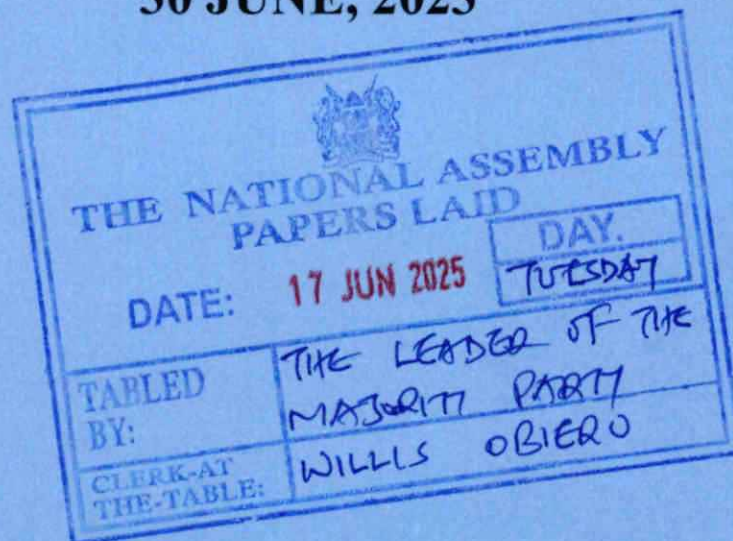 30 JUNE, 2023
THE NATIONAL ASSEMBLY
PAPERS LAID
DATE: 17 JUN 2025
DAY.
TUESDAY
TABLED
BY:
THE LEADER OF THE
MAJORITY PARTY
CLERK-AT
THE-TABLE:
WILLIS OBIERO